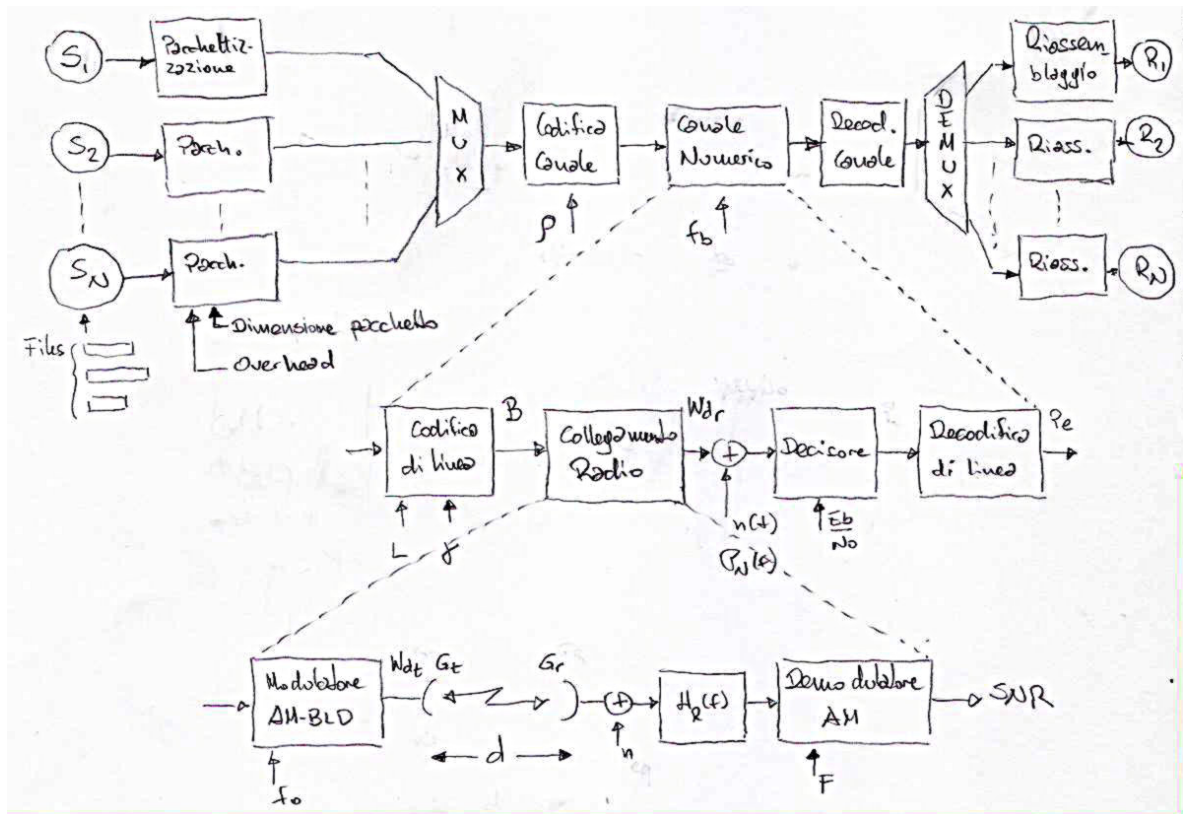 S1
Pacchettiz-
zazione
S2
Pacch.
SN
Pacch.
Dimensione pacchetto
Overhead
Files
MUX
Codifica
Canale
ρ
Canale
Numerico
fb
Decod.
Canale
DEMUX
Riassem-
blaggio
R1
Riass.
R2
Riass.
RN
Codifica
di linea
L
γ
B
Collegamento
Radio
Wdr
+
n(t)
PN(f)
Decisore
Eb
No
Decodifica
di linea
Pe
Modulatore
AM-BLD
fo
Wdt
Gt
d
Gr
+
n
HR(f)
Demodulatore
AM
F
SNR